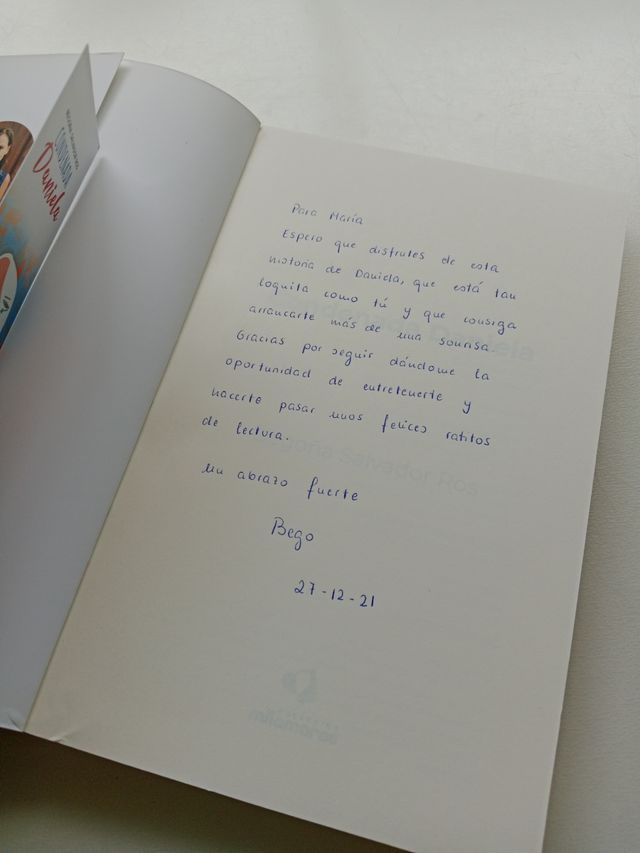 Daniela
Para María
Espero que disfrutes de esta
historia de Daniela, que está tan
loquita como tú y que consiga
arrancarte más de una sonrisa.
Gracias por seguir dándome la
oportunidad de entretenerte y
hacerte pasar unos felices ratitos
de lectura.
Un abrazo fuerte
Bego
27-12-21
Daniela
Begoña Salvador Ros